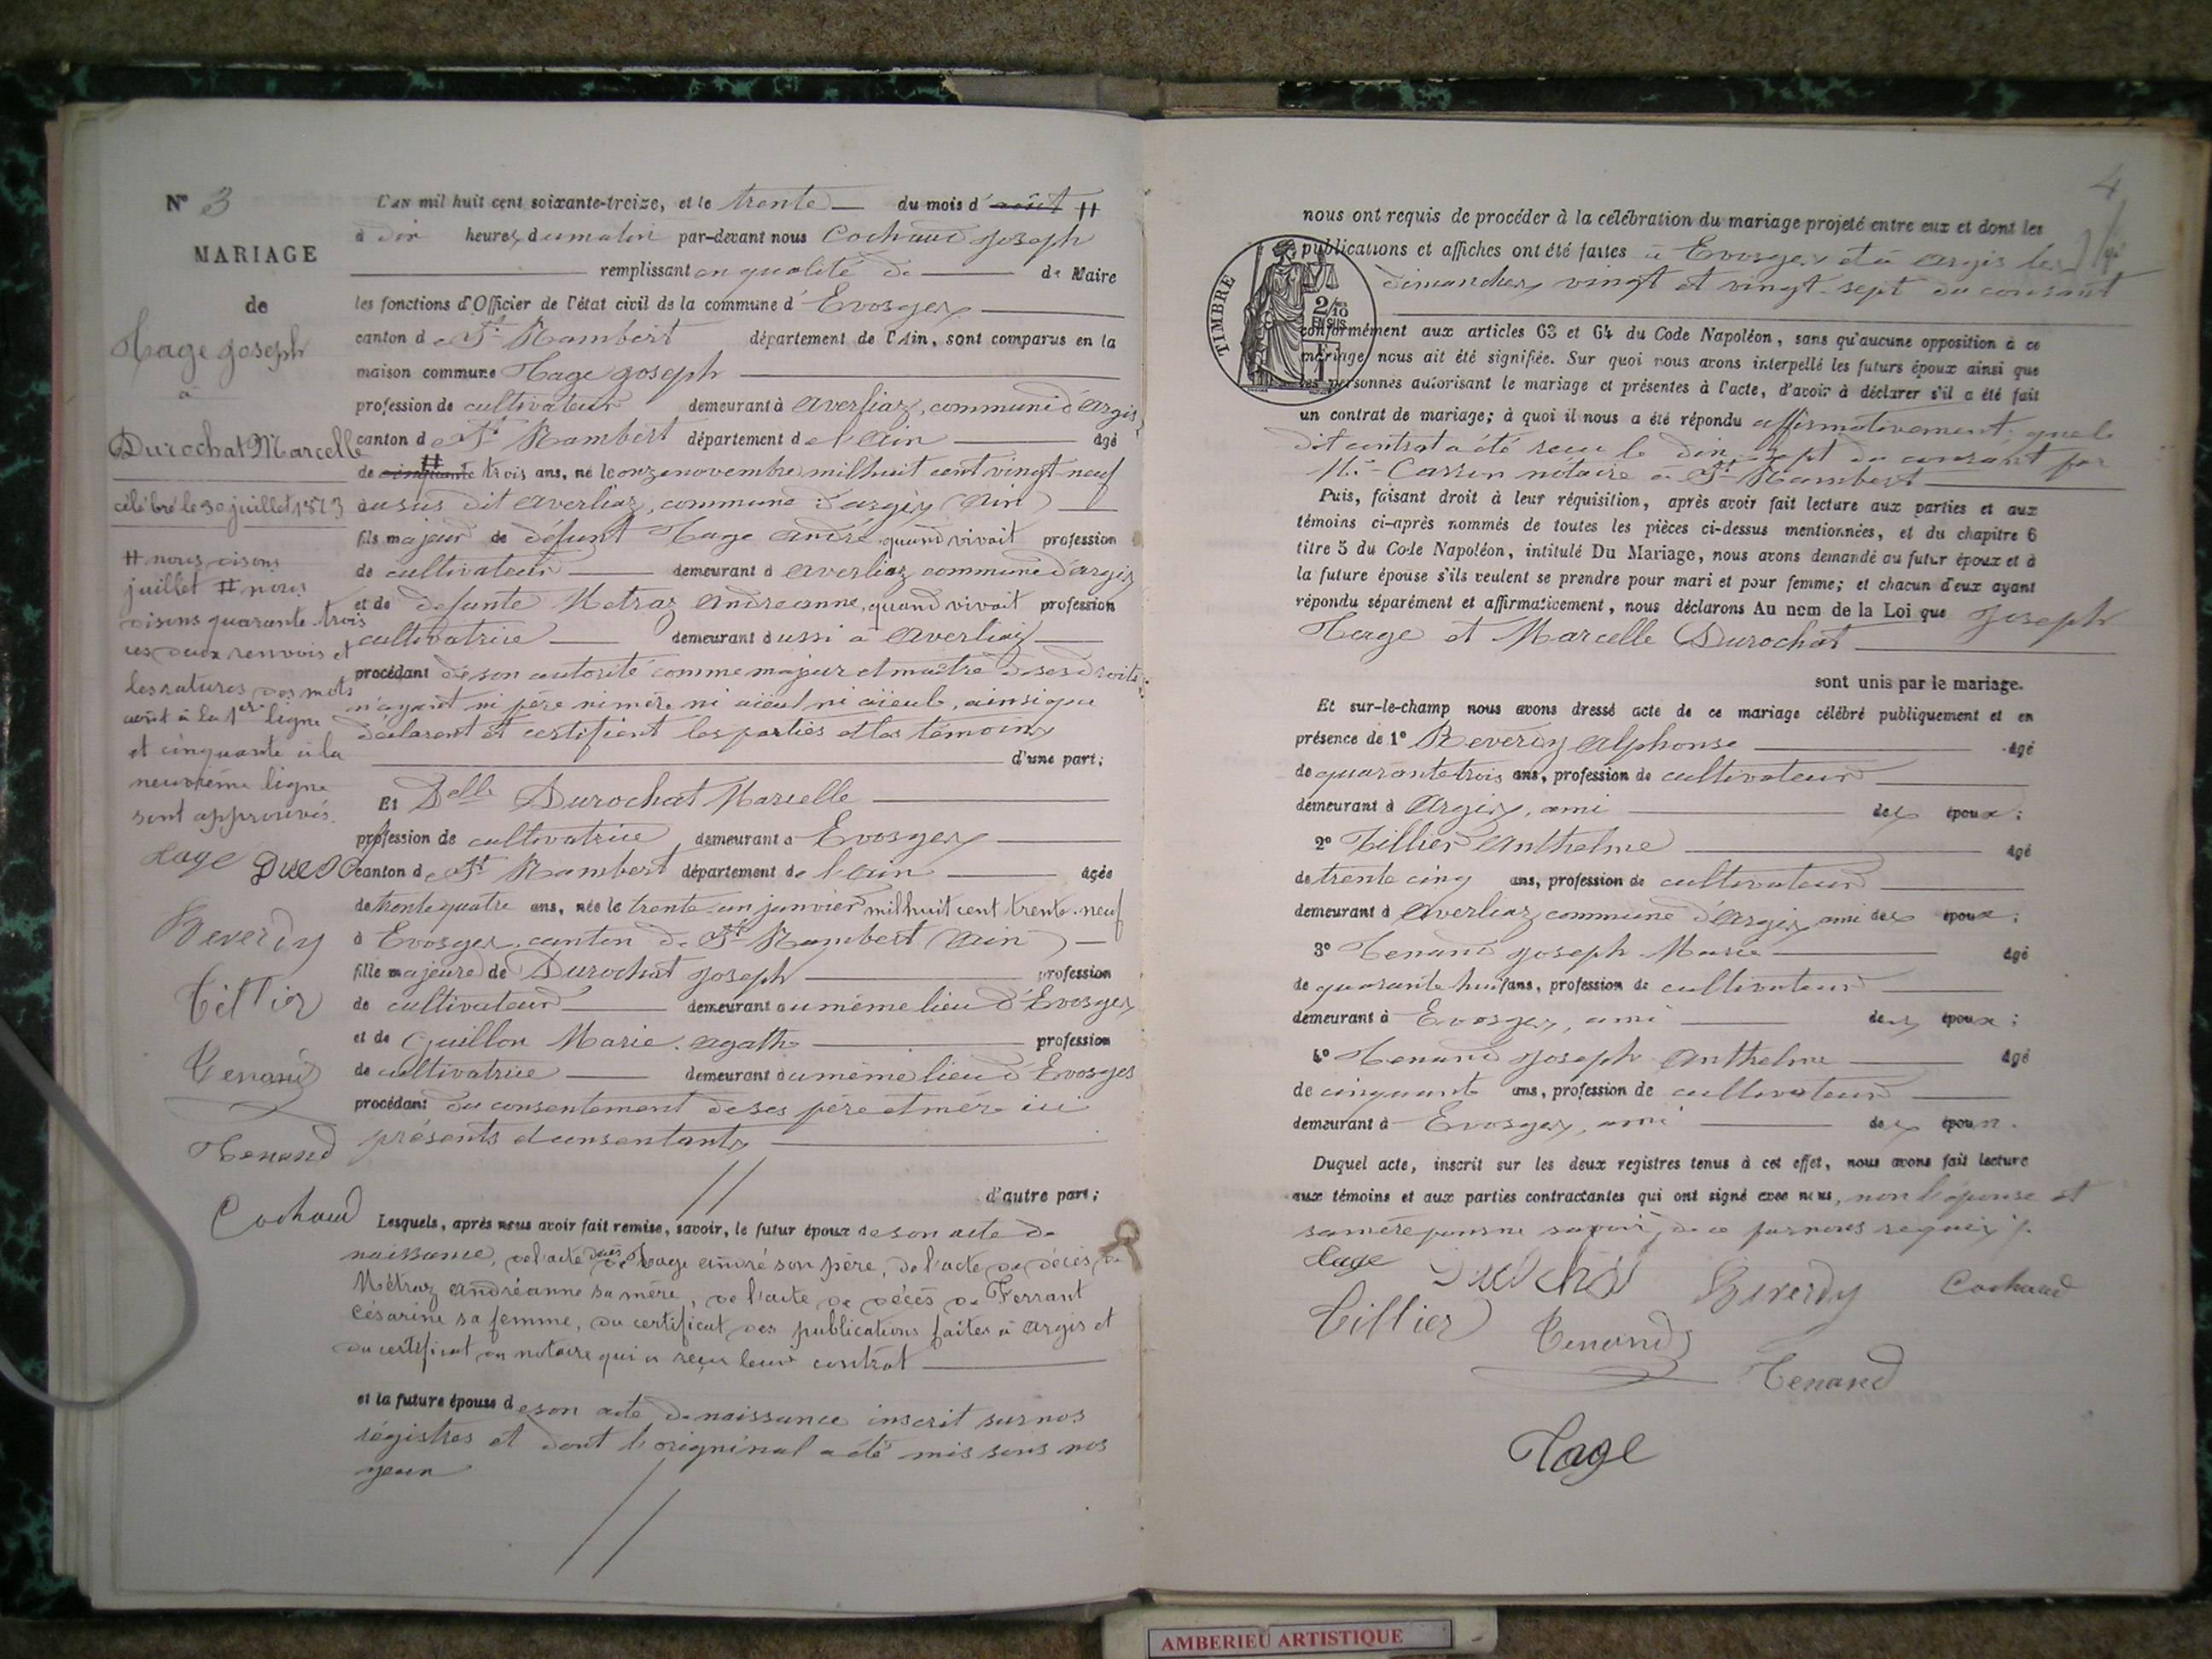 N° 3
MARIAGE
de
Tage Joseph
à
Durochat Marcelle
célébré le 30 juillet 1873
# nous disons
juillet # nous
disons quarante-trois
ces deux renvois et
les ratures des mots
août à la 1ère ligne
et cinquante à la
neuvième ligne
sont approuvés.
Tage
Reverdy
Tillier
Tenand
Tenand
Cochaud
L'AN mil huit cent soixante-treize, et le trente du mois d' août #
à dix heures du matin par-devant nous Cochaud Joseph
remplissant en qualité de de Maire
les fonctions d'Officier de l'état civil de la commune d' Evosges
canton de St Rambert département de l'Ain, sont comparus en la
maison commune Tage Joseph
profession de cultivateur demeurant à Averliaz, commune d'Argis
canton de St Rambert département de l'Ain âgé
de cinquante # trois ans, né le onze novembre mil huit cent vingt-neuf
au sus dit Averliaz, commune d'argis (Ain)
fils majeur de défunt Tage André quand vivait profession
de cultivateur demeurant à Averliaz commune d'argis
et de défunte Métraz Andréanne, quand vivait profession
cultivatrice demeurant aussi à Averliaz
procédant de son autorité comme majeur et maître de ses droits,
n'ayant ni père ni mère ni aïeul ni aïeule, ainsi que
déclarent et certifient les parties et les témoins
d'une part;
Et Delle Durochat Marcelle
profession de cultivatrice demeurant à Evosges
canton de St Rambert département de l'Ain âgée
de trente quatre ans, née le trente-un janvier mil huit cent trente-neuf
à Evosges, canton de St Rambert (Ain)
fille majeure de Durochat Joseph profession
de cultivateur demeurant au même lieu d'Evosges
et de Guillon Marie-Agathe profession
de cultivatrice demeurant au même lieu d'Evosges
procédant du consentement de ses père et mère ici
présents et consentants
d'autre part;
Lesquels, après nous avoir fait remise, savoir, le futur époux de son acte de
naissance, de l'acte de décès de Tage André son père, de l'acte de décès de
Métraz Andréanne sa mère, de l'acte de décès de Ferrant
Césarine sa femme, du certificat des publications faites à Argis et
du certificat du notaire qui a reçu leur contrat
et la future épouse de son acte de naissance inscrit sur nos
régistres et dont l'origninal a été mis sous nos
yeux
4
TIMBRE
2/10 EN SUS
nous ont requis de procéder à la célébration du mariage projeté entre eux et dont les
publications et affiches ont été faites à Evosges et à Argis les
dimanches vingt et vingt-sept du courant
conformément aux articles 63 et 64 du Code Napoléon, sans qu'aucune opposition à ce
mariage nous ait été signifiée. Sur quoi nous avons interpellé les futurs époux ainsi que
les personnes autorisant le mariage et présentes à l'acte, d'avoir à déclarer s'il a été fait
un contrat de mariage; à quoi il nous a été répondu affirmativement; que le
dit contrat a été reçu le dix-sept du courant par
notaire à St Rambert
Puis, faisant droit à leur réquisition, après avoir fait lecture aux parties et aux
témoins ci-après nommés de toutes les pièces ci-dessus mentionnées, et du chapitre 6
titre 5 du Code Napoléon, intitulé Du Mariage, nous avons demandé au futur époux et à
la future épouse s'ils veulent se prendre pour mari et pour femme; et chacun d'eux ayant
répondu séparément et affirmativement, nous déclarons Au nom de la Loi que Joseph
Tage et Marcelle Durochat
sont unis par le mariage.
Et sur-le-champ nous avons dressé acte de ce mariage célébré publiquement et en
présence de 1° Reverdy Alphonse âgé
de quarante trois ans, profession de cultivateur
demeurant à Argis, ami des époux;
2° Tillier Anthelme âgé
de trente cinq ans, profession de cultivateur
demeurant à Averliaz commune d'Argis ami des époux;
3° Tenand Joseph-Marie âgé
de quarante huit ans, profession de cultivateur
demeurant à Evosges, ami des époux;
4° Tenand Joseph Anthelme âgé
de cinquante ans, profession de cultivateur
demeurant à Evosges, ami des époux.
Duquel acte, inscrit sur les deux registres tenus à cet effet, nous avons fait lecture
aux témoins et aux parties contractantes qui ont signé avec nous, non l'épouse et
sa mère pour ne savoir, de ce par nous requis /.
Tage Reverdy Cochaud
Tillier Tenand
Tenand
Tage
AMBERIEU ARTISTIQUE